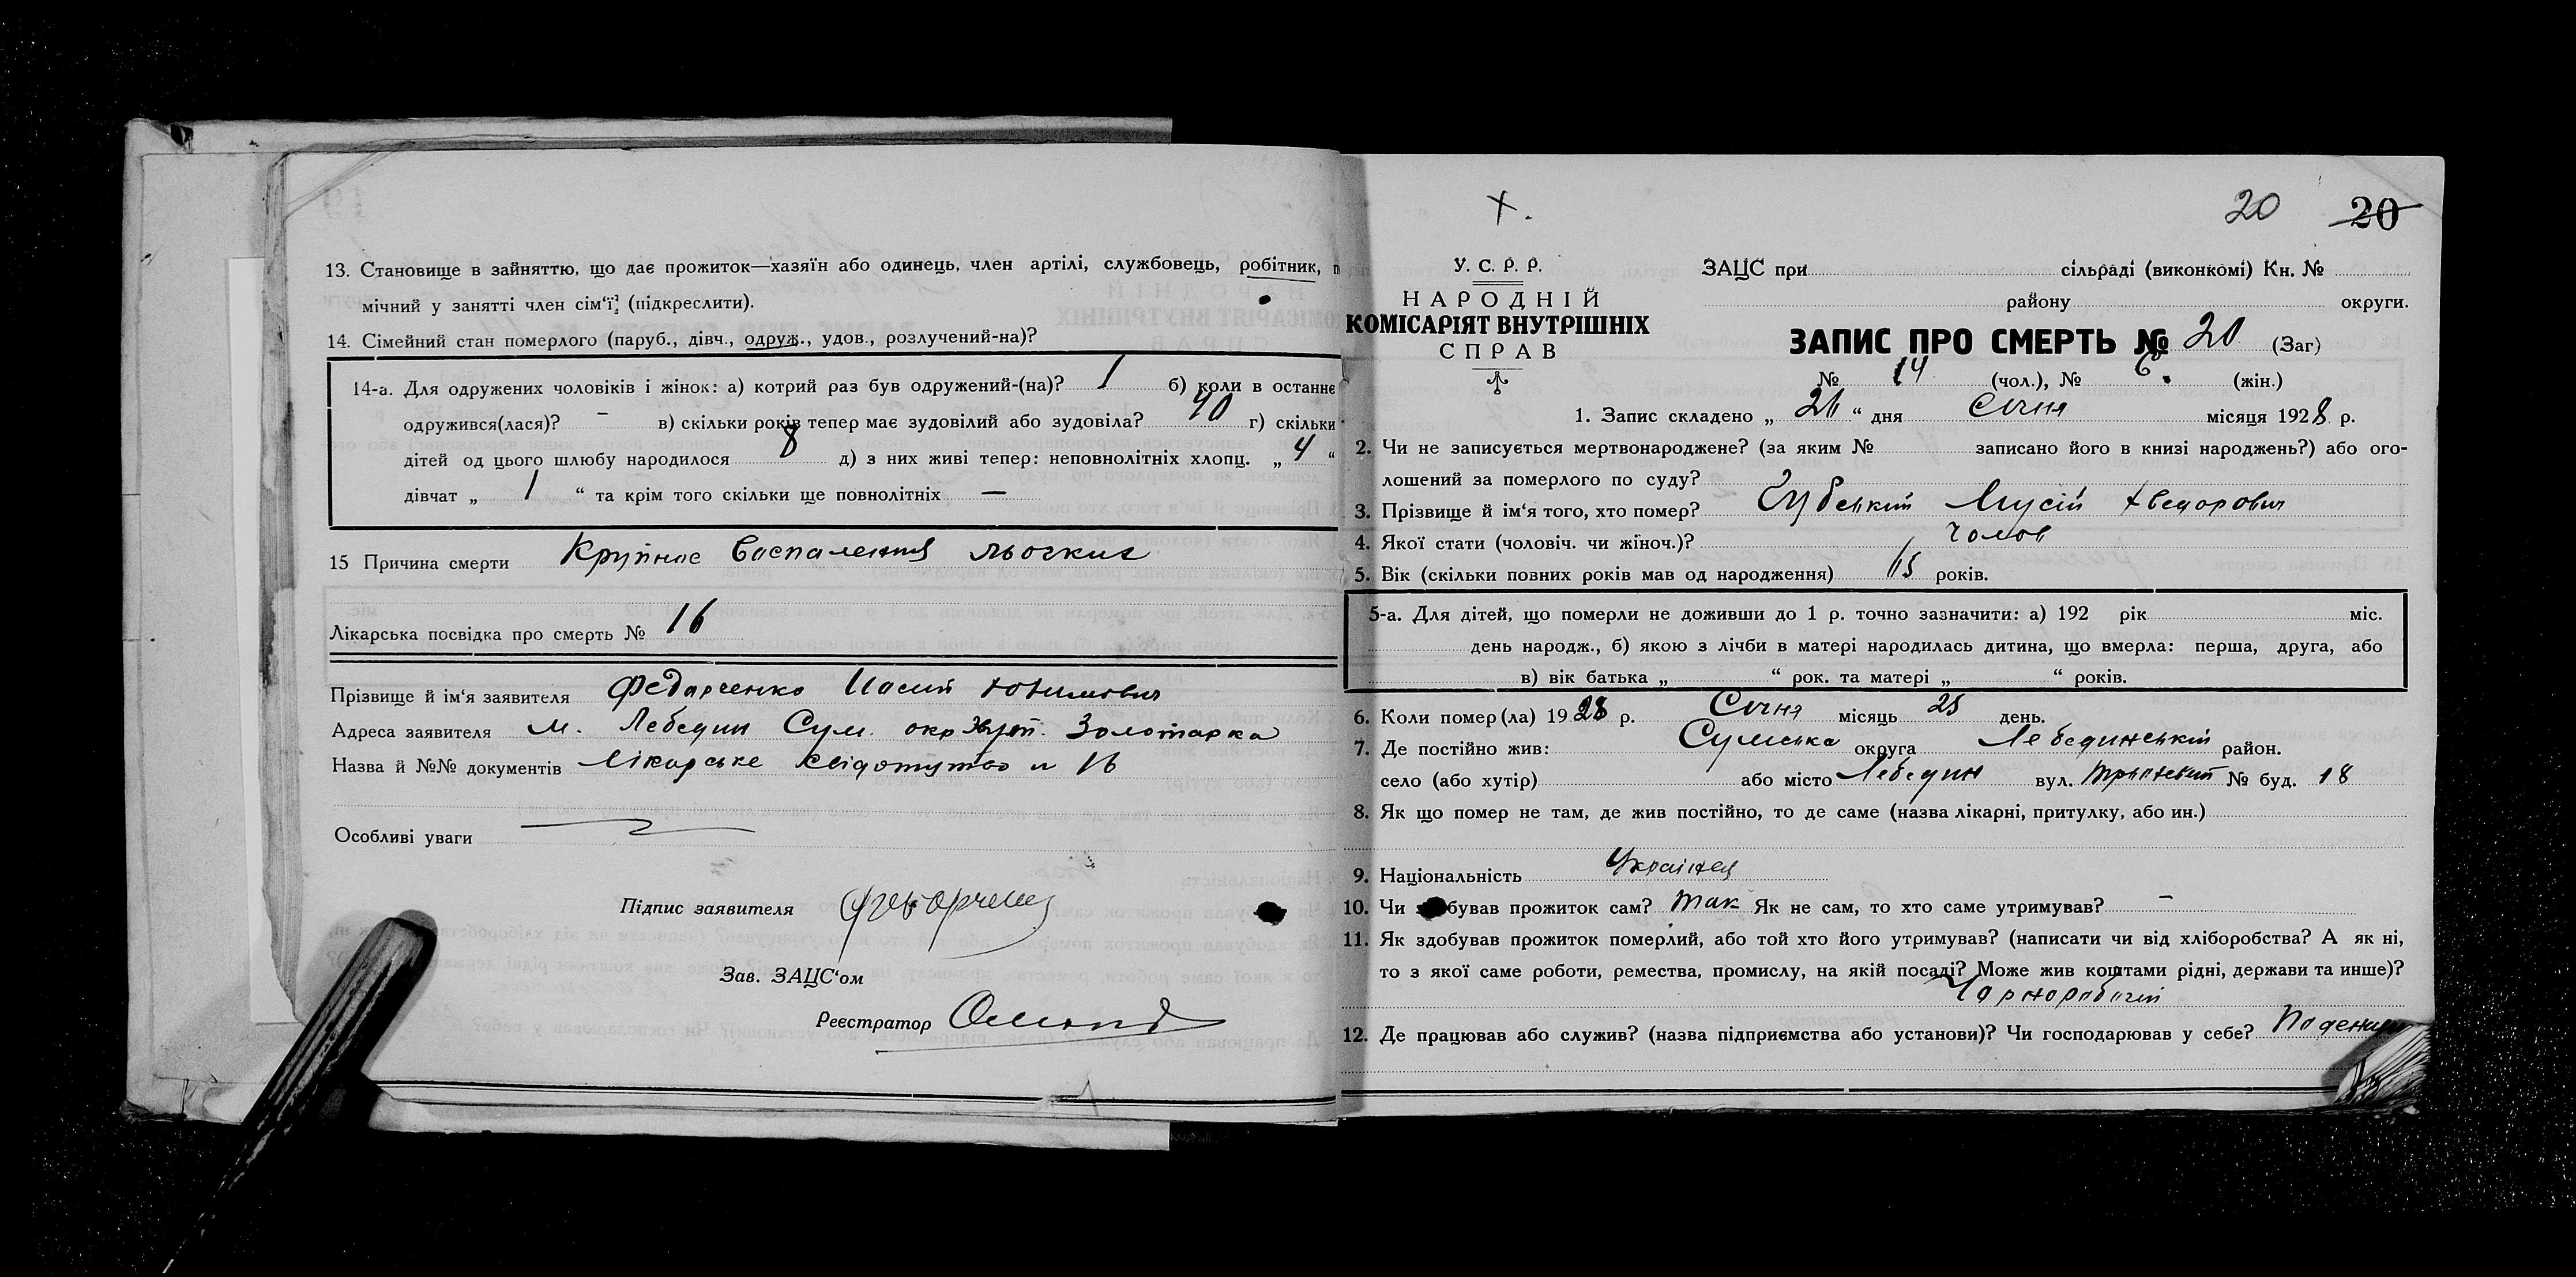 13. Становище в зайняттю, що дає прожиток—хазяїн або одинець, член артілі, службовець, робітник,
мічний у занятті член сім‘ї (підкреслити).
14. Сімейний стан померлого (паруб., дівч., одруж., удов., розлучений-на)?
14-а. Для одружених чоловіків і жінок: а) котрий раз був одружений-(на)? 1 б) коли в останнє
одружився(лася)? – в) скільки років тепер має зудовілий або зудовіла? 40 г) скільки
дітей од цього шлюбу народилося 8 д) з них живі тепер: неповнолітніх хлопц. „ 4 “
дівчат „ 1 “ та крім того скільки ще повнолітніх —
15 Причина смерти Крупное Воспаления льогких
Лікарська посвідка про смерть № 16
Прізвище й ім‘я заявителя Федорченко
Адреса заявителя м. Лебедин Сум. окр Хут. Золотарка
Назва й №№ документів Лікарське № 16
Особливі уваги
Підпис заявителя
Зав. ЗАЦС‘ом
Реєстратор
+.
20 20
У. С. Р. Р.
НАРОДНІЙ
КОМІСАРІЯТ ВНУТРІШНІХ
СПРАВ
ЗАЦС при сільраді (виконкомі) Кн. №
району округи.
ЗАПИС ПРО СМЕРТЬ № 20 (Заг)
№ 14 (чол.), № 6. (жін.)
1. Запис складено „ 26 “ дня Січня місяця 1928 р.
2. Чи не записується мертвонароджене? (за яким № записано його в книзі народжень?) або ого-
лошений за померлого по суду?
3. Прізвище й ім‘я того, хто помер? Губський Мусій Хведорович
4. Якої стати (чоловіч. чи жіноч.)? Чолов
5. Вік (скільки повних років мав од народження) років.
5-а. Для дітей, що померли не доживши до 1 р. точно зазначити: а) 192 рік міс.
день народж., б) якою з лічби в матері народилась дитина, що вмерла: перша, друга, або
в) вік батька „ “ рок. та матері „ “ років.
6. Коли помер(ла) 1928 р. Січня місяць 25 день.
7. Де постійно жив: Сумська округа Лебединський район.
село (або хутір) або місто Лебедин вул. № буд. 18
8. Як що помер не там, де жив постійно, то де саме (назва лікарні, притулку, або ин.)
9. Національність Українец
10. Чи бував прожиток сам? Так Як не сам, то хто саме утримував? –
11. Як здобував прожиток померлий, або той хто його утримував? (написати чи від хліборобства? А як ні,
то з якої саме роботи, ремества, промислу, на якій посаді? Може жив коштами рідні, держави та инше)?
Чорноробочій
12. Де працював або служив? (назва підприємства або установи)? Чи господарював у себе?